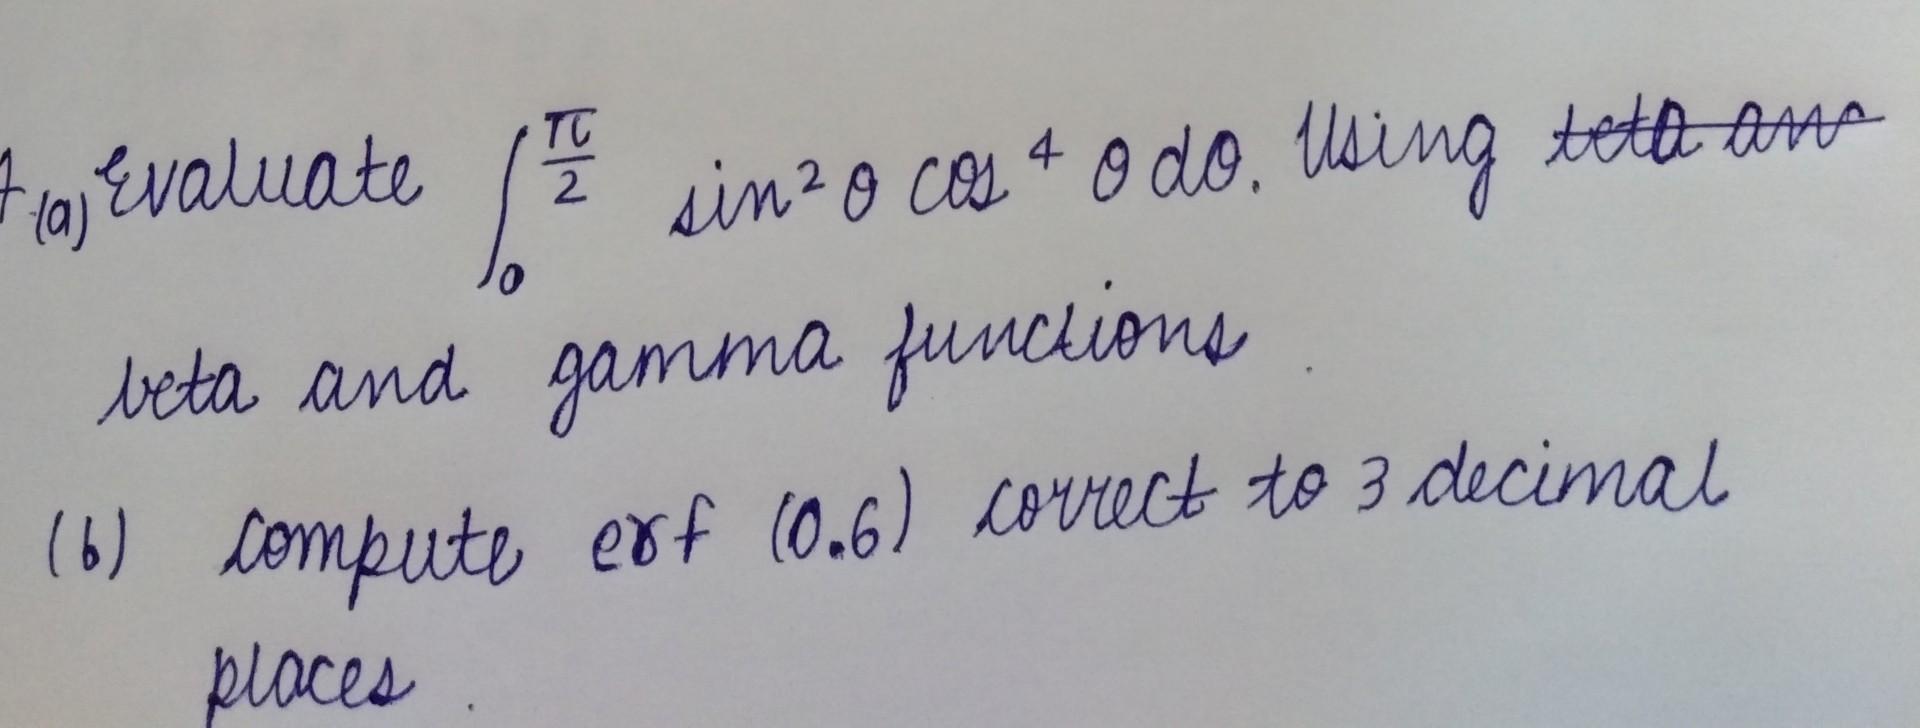 (a) Evaluate ∫₀^(π/2) sin² θ cos⁴ θ dθ. Using
beta and gamma functions.
(b) compute erf (0.6) correct to 3 decimal
places.